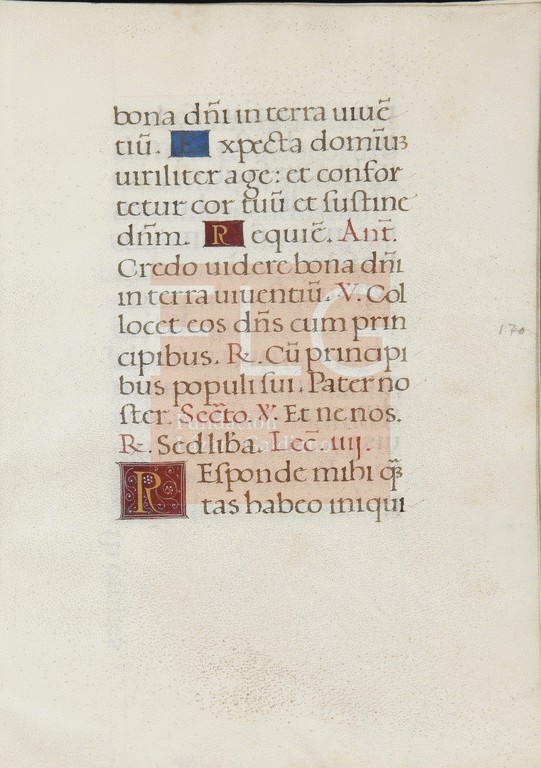 bona dñi in terra uiuẽ
tiũ. Expecta domĩuʒ
uiriliter age: et confor
tetur cor tuũ et ſuſtine
dñm. Requiẽ. Añt.
Credo uidere bona dñi
in terra uiuentiũ. V. Col
locet eos dñs cum prin
cipibus. R. Cũ principi
bus populi ſui. Pater no
ſter. Secr̃to. V. Et ne nos.
R. Sed liba. Lec̃. iiij.
REſponde mihi
tas habeo iniqui
170
FLG
Fundación